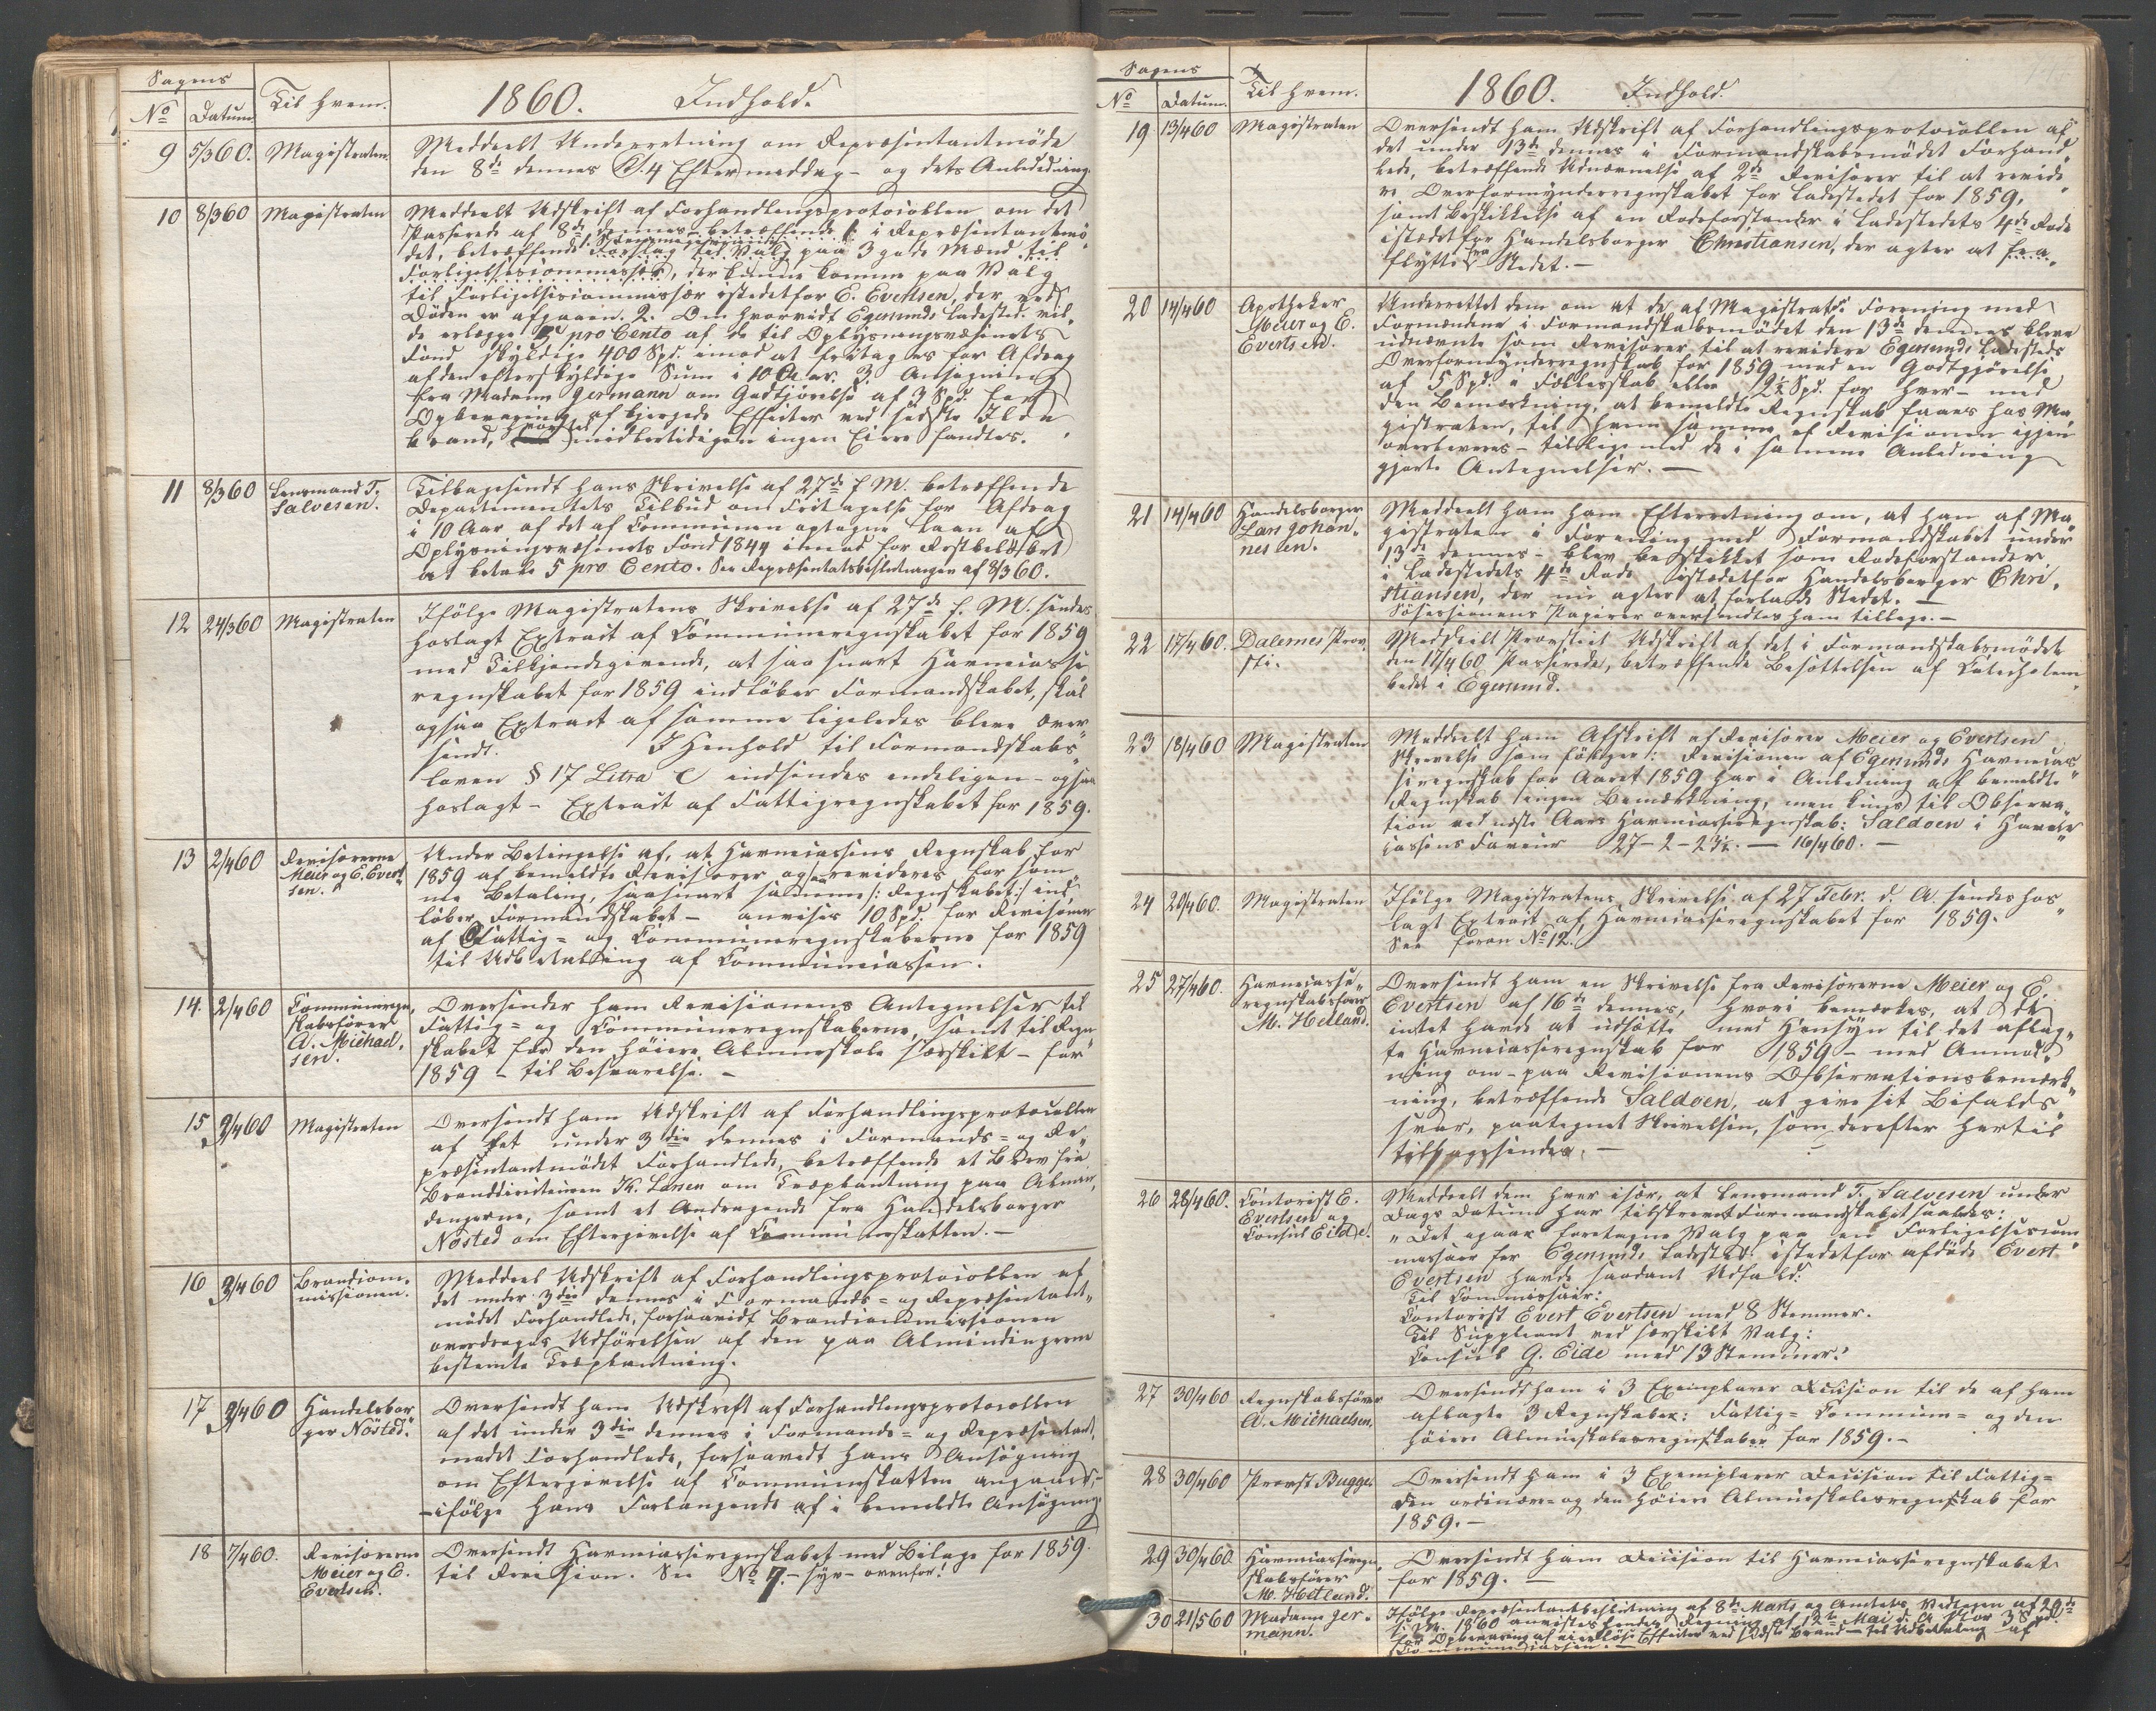 Sagens
No Datum Til Hvem. 1860. Indhold.
9 5/3 60. Magistraten. Meddeelt Underretning om Repræsentantmöde
den 8de dennes Kl. 4 Eftermiddag - og dets Anledning.
10 8/3 60 Magistraten Meddeelt Udskrift af Forhandlingsprotocollen om det
Passerede af 8de dennes betræffende i Repræsentantmö-
det, betræffende Forslag til Valg paa 3 gode Mænd til
Forligelsescommissær, der kunne komme paa Valg
til Forligelsescommissær istedetfor E. Evertsen, der ved
Døden er afgaaen. 2. Om hvorvidt Egersunds Ladested vil-
de erlægge 5 pro Cento af de til Oplysningsvæsenets
Fond skyldige 400 Spd. imod at fritages for Afdrag
af den efterskyldige Sum i 10 Aar. 3. Ansøgning
fra Madame Germann om Godtgjörelse af 3 Spd. for
Opbevaring af bjergede Effecter ved sidste Ilde-
brand, hvortil midlertidigen ingen Eiere fandtes.
11 8/3 60 Lensmand T. Tilbagesendt hans Skrivelse af 27de f. M. betræffende
Salvesen. Departementets Tilbud om Fritagelse for Afdrag
i 10 Aar af det af Communen optagne Laan af
Oplysningsvæsenets Fond 1844 imod for Restbeløbet
at betale 5 pro Cento. See Repræsentatsbeslutningen af 8/3 60.
12 24/3 60 Magistraten Ifölge Magistratens Skrivelse af 27de f. M. sendes
hoslagt Extract af Communeregnskabet for 1859
med Tilkjendegivende, at saa snart Havnecasse
regnskabet for 1859 indlöber Formandskabet, skal
ogsaa Extract af samme ligeledes blive over-
sendt. I Henhold til Formandskabs-
loven § 17 Litra c indsendes endeligen - ogsaa
hoslagt - Extract af Fattigregnskabet for 1859.
13 2/4 60 Revisorerne Under Betingelse af, at Havnecassens Regnskab for
Meier og E. Evert- 1859 af bemeldte Revisorer ogsaa revideres for sam-
sen. me Betaling, saasnart samme /: Regnskabet :/ ind-
löber Formandskabet - anvises 10 Spd. for Revisionen
af Fattig- og Communeregnskaberne for 1859
til Udbetaling af Communecassen.
14. 2/4 60 Communeregn- Oversender ham Revisionens Antegnelser til
skabsfører Fattig- og Communeregnskaberne, samt til Regn-
A. Michael- skabet for den höiere Almueskole særskilt - for
sen. 1859 - til Besvarelse. -
15 3/4 60 Magistraten Oversendt ham Udskrift af Forhandlingsprotocollen
af det under 3die dennes i Formands- og Re-
præsentantmödet Forhandlede, betræffende et Brev fra
Branddirecteuren K. Larsen om Træplantning paa Almin-
dingerne, samt et Andragende fra Handelsborger
Nösted om Eftergivelse af Communeskatten. -
16 3/4 60 Brandcom- Meddeel Udskrift af Forhandlingsprotocollen af
missionen. det under 3die dennes i Formands- og Repræsentant-
mödet Forhandlede, forsaavidt Brandcommissionen
overdrages Udförelsen af den paa Almindingerne
bestemte Træplantning.
17 3/4 60 Handelsbor- Oversendt ham Udskrift af Forhandlingsprotocollen
ger Nösted. af det under 3die dennes i Formands- og Repræsentant-
mödet Forhandlede, forsaavidt hans Ansögning
om Eftergivelse af Communeskatten angaaes, -
- ifölge hans Forlangende af i bemeldte Ansögning.
18 7/4 60. Revisorerne Oversendt Havnecasseregnskabet med Bilage for 1859.
Meier og E. til Revision. See No 7 - syv - ovenfor!
Evertsen.
Sagens
No Datum. Til Hvem. 1860. Indhold.
19 13/4 60 Magistraten Oversendt ham Udskrift af Forhandlingsprotocollen af
det under 13de dennes i Formandskabsmödet Forhand-
lede, betræffende Udnævnelse af 2de Revisorer til at revide-
re Overformynderregnskabet for Ladestedet for 1859,
samt Beskikkelse af en Rodeforstander i Ladestedets 4de Rode
istedetfor Handelsborger Christiansen, der agter at fra-
flytte Stedet. -
20 14/4 60 Apotheker Underrettet dem om at de af Magistrats Forening med
Meier og E. Formændene i Formandskabsmödet den 13de dennes bleve
Evertsen. udnævnte som Revisorer til at revidere Egersunds Ladesteds
Overformynderregnskab for 1859 med en Godtgjörelse
af 5 Spd. i Fællesskab eller 2½ Spd. for hver - med
den Bemærkning, at bemeldte Regnskab faaes hos Ma-
gistraten, til hvem samme af Revisionen igjen
overleveres - tillige med de i samme Anledning
gjorte Antegnelser. -
21 14/4 60 Handelsborger Meddeelt ham ham Efterretning om, at han af Ma-
Lars Johan- gistraten i Forening med Formandskabet under
nessen. 13de dennes - blev beskikket som Rodeforstander
i Ladestedets 4de Rode istedetfor Handelsborger Chri-
stiansen, der nu agter at forlade Stedet. -
Papirer oversendtes ham tillige. -
22 17/4 60. Dalernes Prov- Meddeelt Provstiet Udskrift af det i Formandskabsmödet
sti. den 17/4 60 Passerede, betræffende Besættelsen af
i Egersund.
23 18/4 60 Magistraten Meddeelt ham Afskrift af Revisorer Meier og Evertsen
Skrivelse som fölger: Revisionen af Egersunds Havnecas-
seregnskab for Aaret 1859 har i Anledning af bemeldte
Regnskab ingen Bemærkning, men kuns til Observa-
tion ved næste Aars Havnecasseregnskab: Saldoen i Havne-
cassens Faveur 27-2-23½. - 16/4 60. -
24 20/4 60. Magistraten Ifölge Magistratens Skrivelse af 27 Febr. d. A. sendes hos-
lagt Extract af Havnecasseregnskabet for 1859.
See foran No 12.
25 27/4 60. Havnecasse- Oversendt ham en Skrivelse fra Revisorerne Meier og E.
regnskabsfører Evertsen af 16de dennes, hvori bemærkes, at de
M. Hetland. intet havde at udsætte med Hensyn til det aflag-
te Havnecasseregnskab for 1859 - med Anmod-
ning om - paa Revisionens Observationsbemærk-
ning, betræffende Saldoen, at give sit Bifalds-
svar, paategnet Skrivelsen, som derefter hertil
tilbagesendes. -
26 28/4 60. Contorist E. Meddeelt dem hver især, at Lensmand T. Salvesen under
Evertsen og Dags Datum har tilskrevet Formandskabet saaledes:
Consul Eide. "Det igaar foretagne Valg paa en Forligelsescom-
missair for Egersunds Ladested istedetfor afdöde Evert
Evertsen havde saadant Udfald:
Til Commissair:
Contorist Evert Evertsen med 8 Stemmer.
Til Suppleant ved særskilt Valg:
Consul G. Eide med 13 Stemmer."
27 30/4 60 Regnskabsfører Oversendt ham i 3 Exemplarer Decision til de af ham
A. Michaelsen. aflagte 3 Regnskaber: Fattig- Commune- og den
höiere Almueskolesregnskaber for 1859. -
28 30/4 60 Provst Bugge. Oversendt ham i 3 Exemplarer Decision til Fattig-
den ordinære- og den höiere Almueskolesregnskab for
1859. -
29 30/4 60 Havnecasseregn- Oversendt ham Decision til Havnecasseregnskabet
skabsfører for 1859. -
M. Hetland.
30 21/5 60 Madame Ger- Ifölge Repræsentantbeslutning af 8de Marts og Amtets Vedtagen af 20de
mann. 1860 anvises hendes Regning af 12te Mai d. A. stor 3 Spd.
for Opbevaring af eierlöse Effecter ved sidste Brand - til Udbetaling af
Communecassen. -